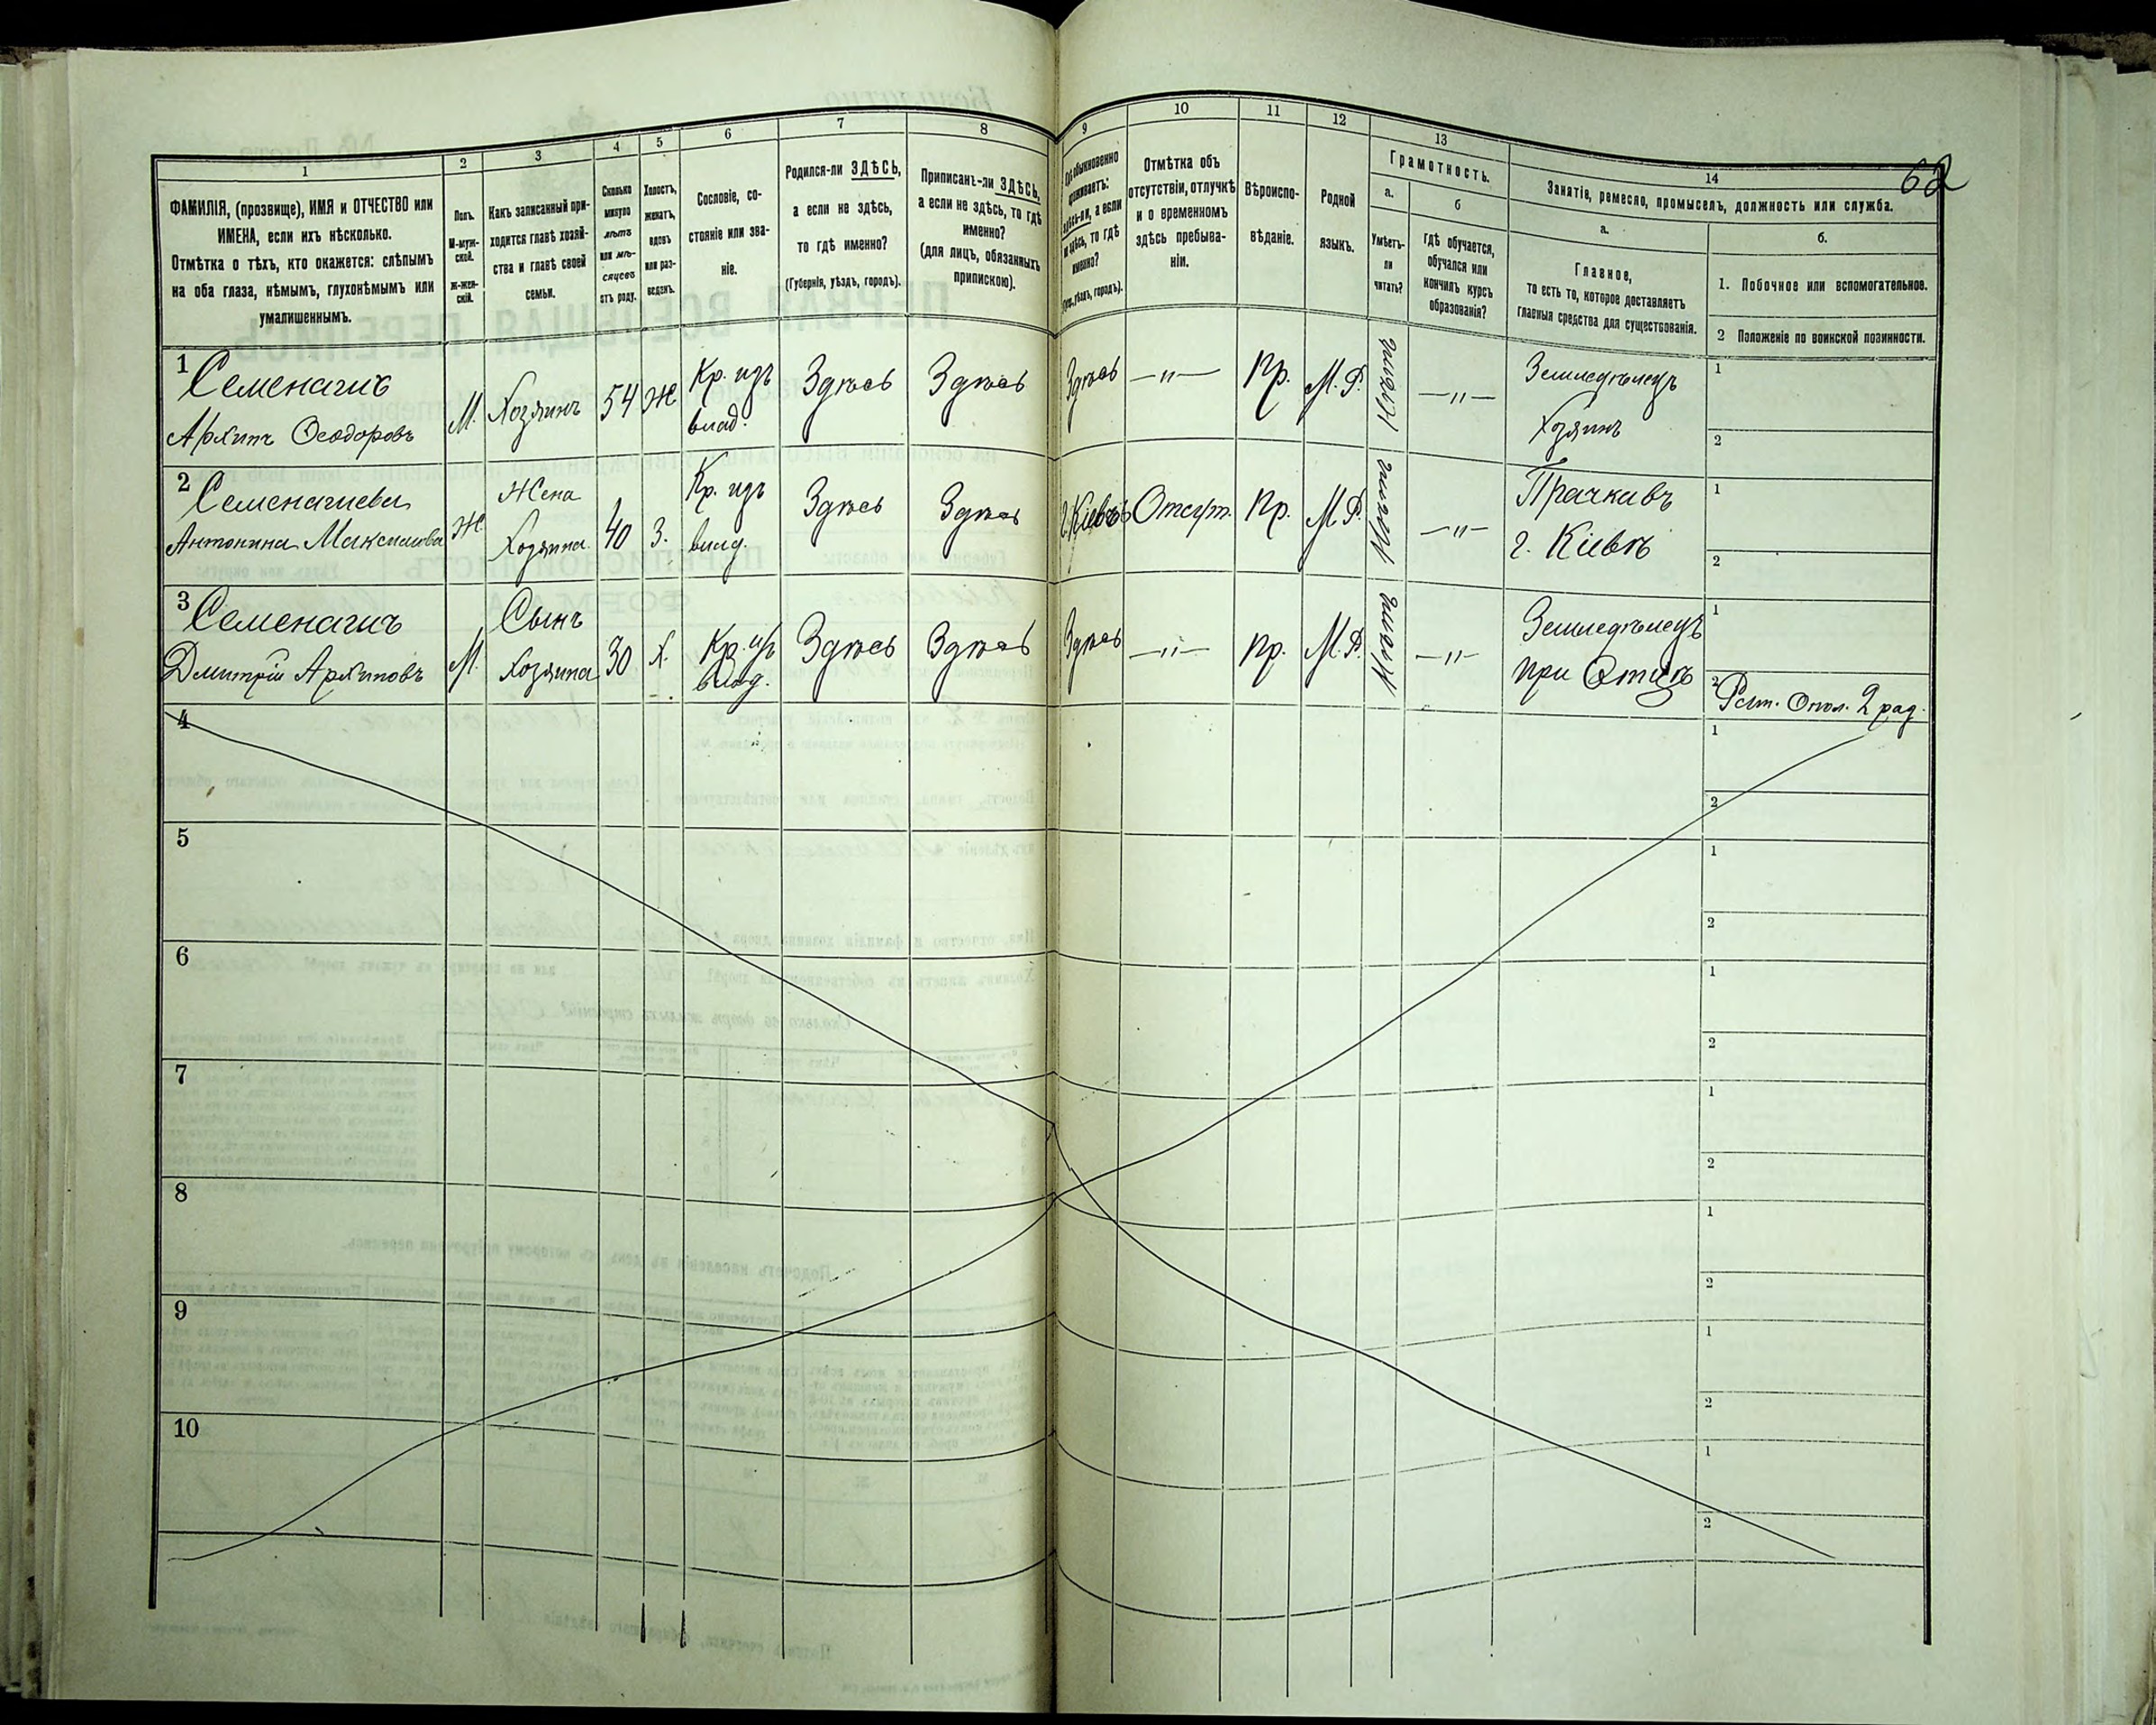 62
1
2
3
4
5
6
7
8
9
10
11
12
13
14
ФАМИЛІЯ, (прозвище), ИМЯ и ОТЧЕСТВО или
ИМЕНА, если ихъ нѣсколько.
Отмѣтка о тѣхъ, кто окажется: слѣпымъ
на оба глаза, нѣмымъ, глухонѣмымъ или
умалишеннымъ.
Полъ.
М-муж-
ской.
Ж-жен-
скій.
Какъ записанный при-
ходится главѣ хозяй-
ства и главѣ своей
семьи.
Сколько
минуло
лѣтъ
или мѣ-
сяцевъ
отъ роду.
Холостъ,
женатъ,
вдовъ
или раз-
веденъ.
Сословіе, со-
стояніе или зва-
ніе.
Родился-ли ЗДѢСЬ,
а если не здѣсь,
то гдѣ именно?
(Губернія, уѣздъ, городъ).
Приписанъ-ли ЗДѢСЬ,
а если не здѣсь, то гдѣ
именно?
(для лицъ, обязанныхъ
припискою).
Гдѣ обыкновенно
проживаетъ:
здѣсь-ли, а если
не здѣсь, то гдѣ
именно?
(Губ., уѣздъ, городъ).
Отмѣтка объ
отсутствіи, отлучкѣ
и о временномъ
здѣсь пребыва-
ніи.
Вѣроиспо-
вѣданіе.
Родной
языкъ.
Грамотность.
а.
Умѣетъ-
ли
читать?
б
гдѣ обучается,
обучался или
кончилъ курсъ
образованія?
Занятіе, ремесло, промыселъ, должность или служба.
а.
Главное,
то есть то, которое доставляетъ
главныя средства для существованія.
б.
1. Побочное или вспомогательное.
2 Положеніе по воинской повинности.
1 Семенагичъ
Архипъ Ѳеодоровъ
М.
Хозяинъ
54
Ж
Кр. изъ
влад.
Здѣсь
Здѣсь
Здѣсь
—"—
Пр.
М. Р.
—"—
Земледѣлецъ
Хозяинъ
1
2
2 Семенагиева
Антонина Максимова
Ж
Жена
Хозяина
40
З.
Кр. изъ
влад.
Здѣсь
Здѣсь
г. Кіевъ
Отсут.
Пр.
М. Р.
—"—
Прачка въ
г. Кіевѣ
1
2
3 Семенагичъ
Дмитрій Архиповъ
М.
Сынъ
Хозяина
30
Х.
Кр. изъ
влад.
Здѣсь
Здѣсь
Здѣсь
—"—
Пр.
М. Р.
—"—
Земледѣлецъ
при Отцѣ
1
2 Рат. Опол. 2 раз.
4
1
2
5
1
2
6
1
2
7
1
2
8
1
2
9
1
2
10
1
2